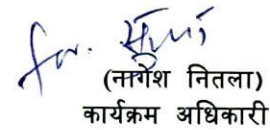 for.
(नागेश नितला)
कार्यक्रम अधिकारी